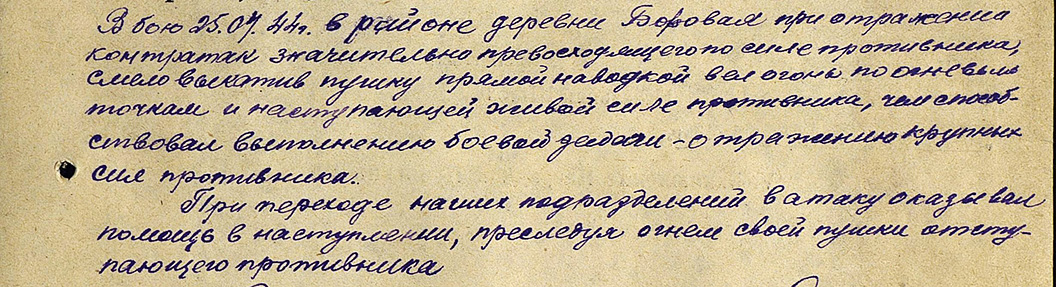 В бою 25.07.44г. в районе деревни Боровая при отражении
контратак значительно превосходящего по силе противника,
смело выкатив пушку прямой наводкой вел огонь по огневым
точкам и наступающей живой силе противника, чем способ-
ствовал выполнению боевой задачи - отражению крупных
сил противника.
При переходе наших подразделений в атаку оказывал
помощь в наступлении, преследуя огнем своей пушки отсту-
пающего противника